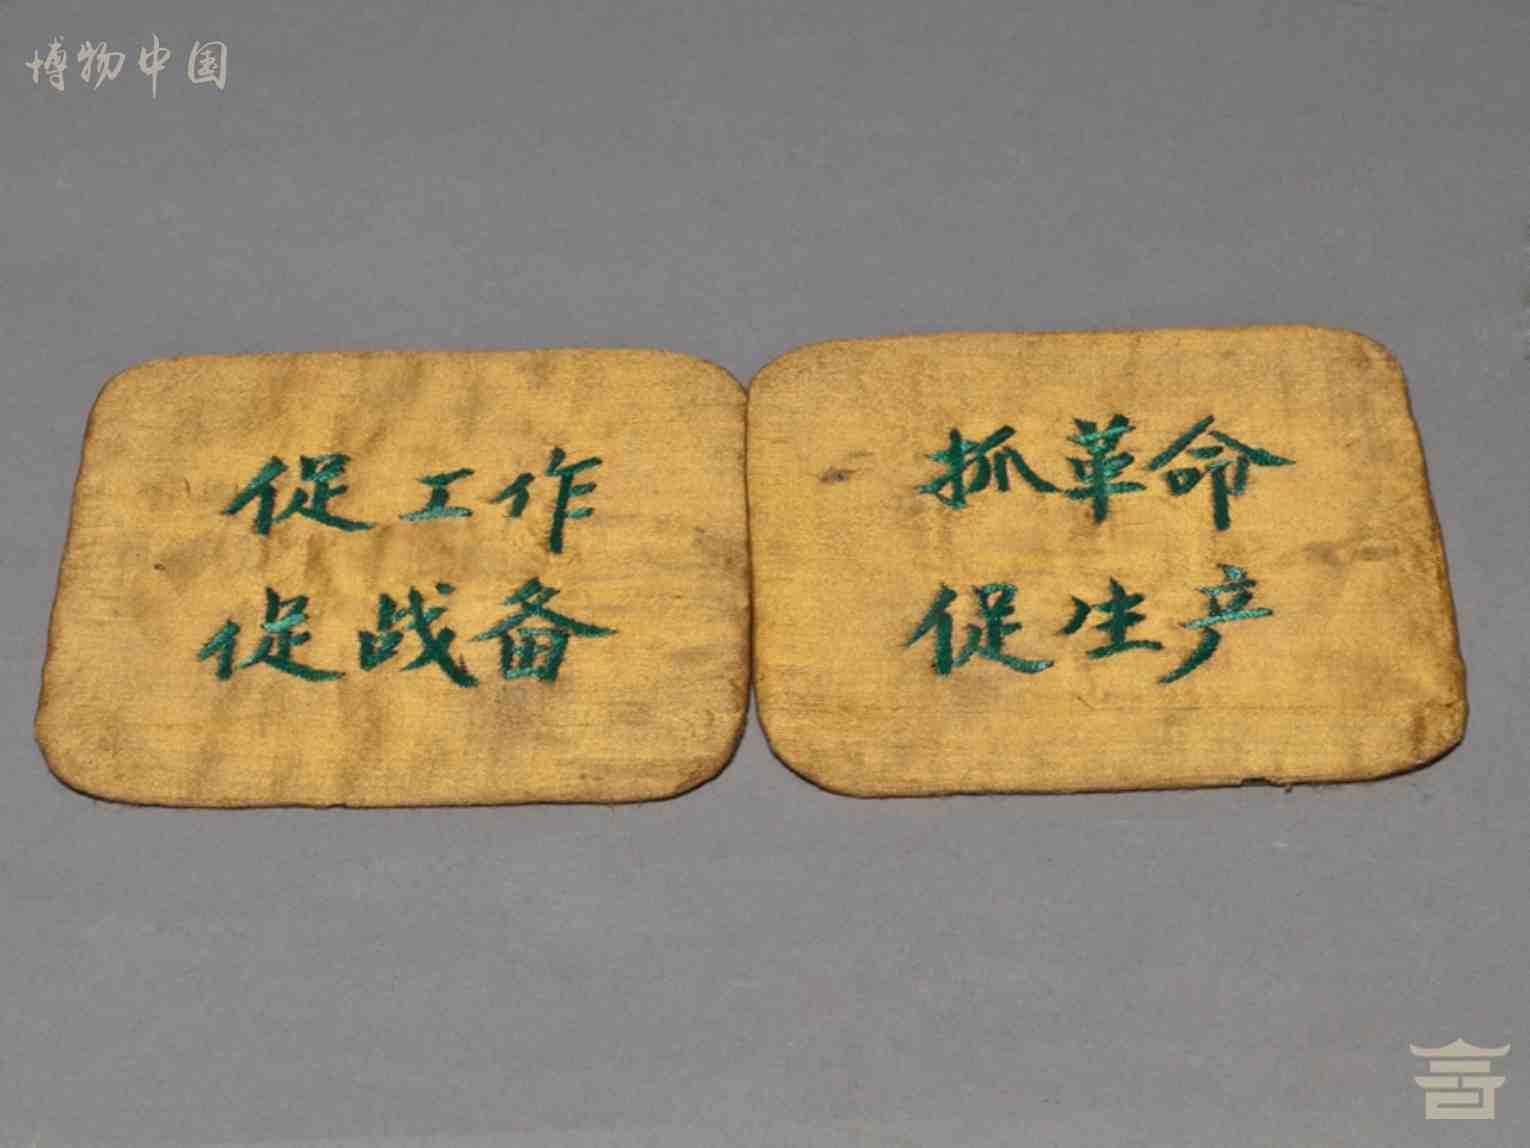 博物中国
促工作
促战备
抓革命
促生产